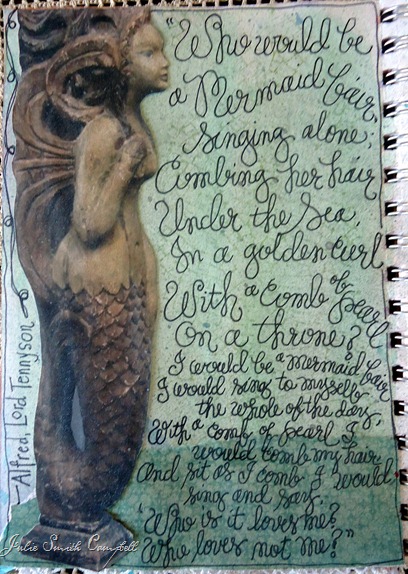 "Who would be
a Mermaid fair,
Singing alone,
Combing her hair
Under the Sea,
In a golden curl
With a comb of pearl
On a throne?
I would be a mermaid fair
I would sing to myself
the whole of the day,
With a comb of pearl I
would comb my hair
And sit as I comb I would
sing and say,
'Who is it loves me?
Who loves not me?"
Alfred, Lord Tennyson
Julie Smith Campbell